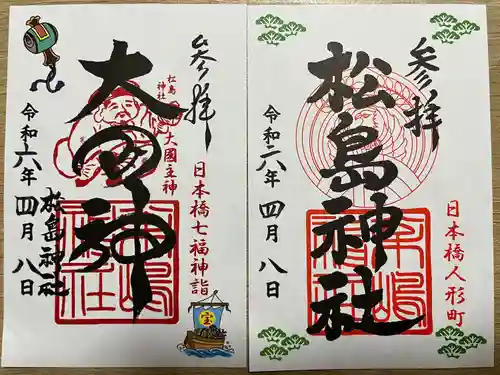 参拝
松島
神社
大國主神
大國神
日本橋七福神詣
松島神社
令和六年 四月 八日
宝
参拝
松島神社
日本橋人形町
令和六年 四月 八日